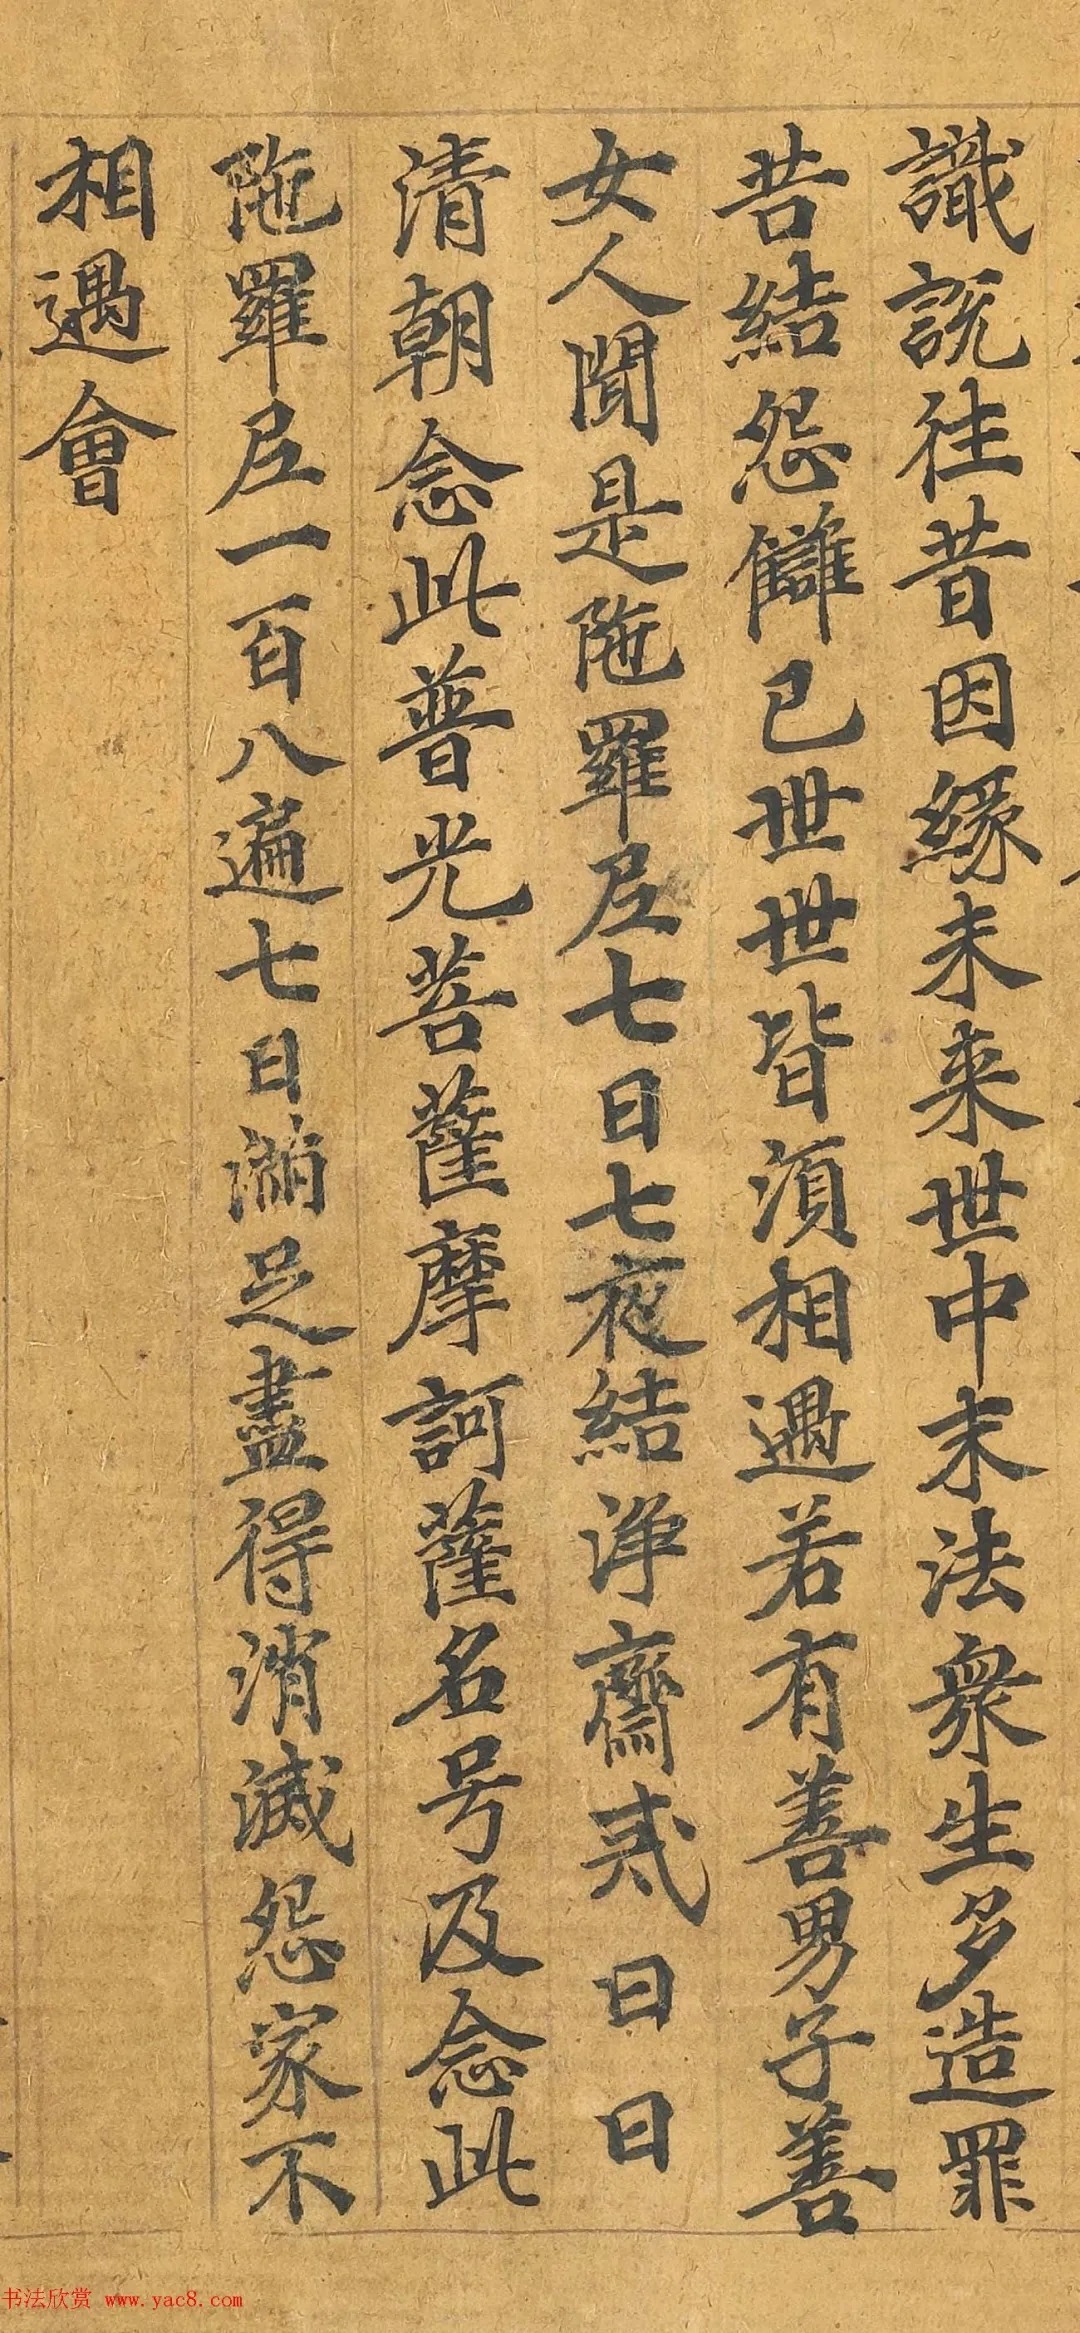 識說往昔因緣未来世中末法衆生多造罪
苦結怨讎已世世皆湏相遇若有善男子善
女人聞是陁羅尼七日七夜結淨齋貳日日
清朝念此普光菩薩摩訶薩名号及念此
陁羅尼一百八遍七日滿足盡得消滅怨家不
相遇會
书法欣赏 www.yac8.com